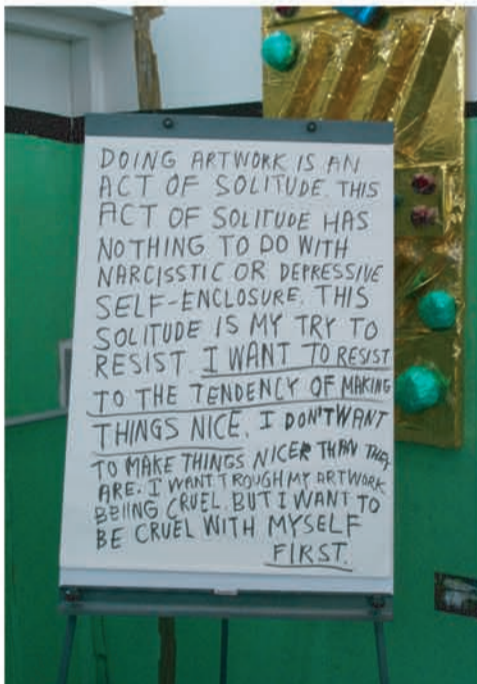 DOING ARTWORK IS AN
ACT OF SOLITUDE. THIS
ACT OF SOLITUDE HAS
NOTHING TO DO WITH
NARCISSTIC OR DEPRESSIVE
SELF-ENCLOSURE. THIS
SOLITUDE IS MY TRY TO
RESIST. I WANT TO RESIST
TO THE TENDENCY OF MAKING
THINGS NICE. I DON'T WANT
TO MAKE THINGS NICER THAN THEY
ARE. I WANT TROUGH MY ARTWORK
BEIING CRUEL. BUT I WANT TO
BE CRUEL WITH MYSELF
FIRST.